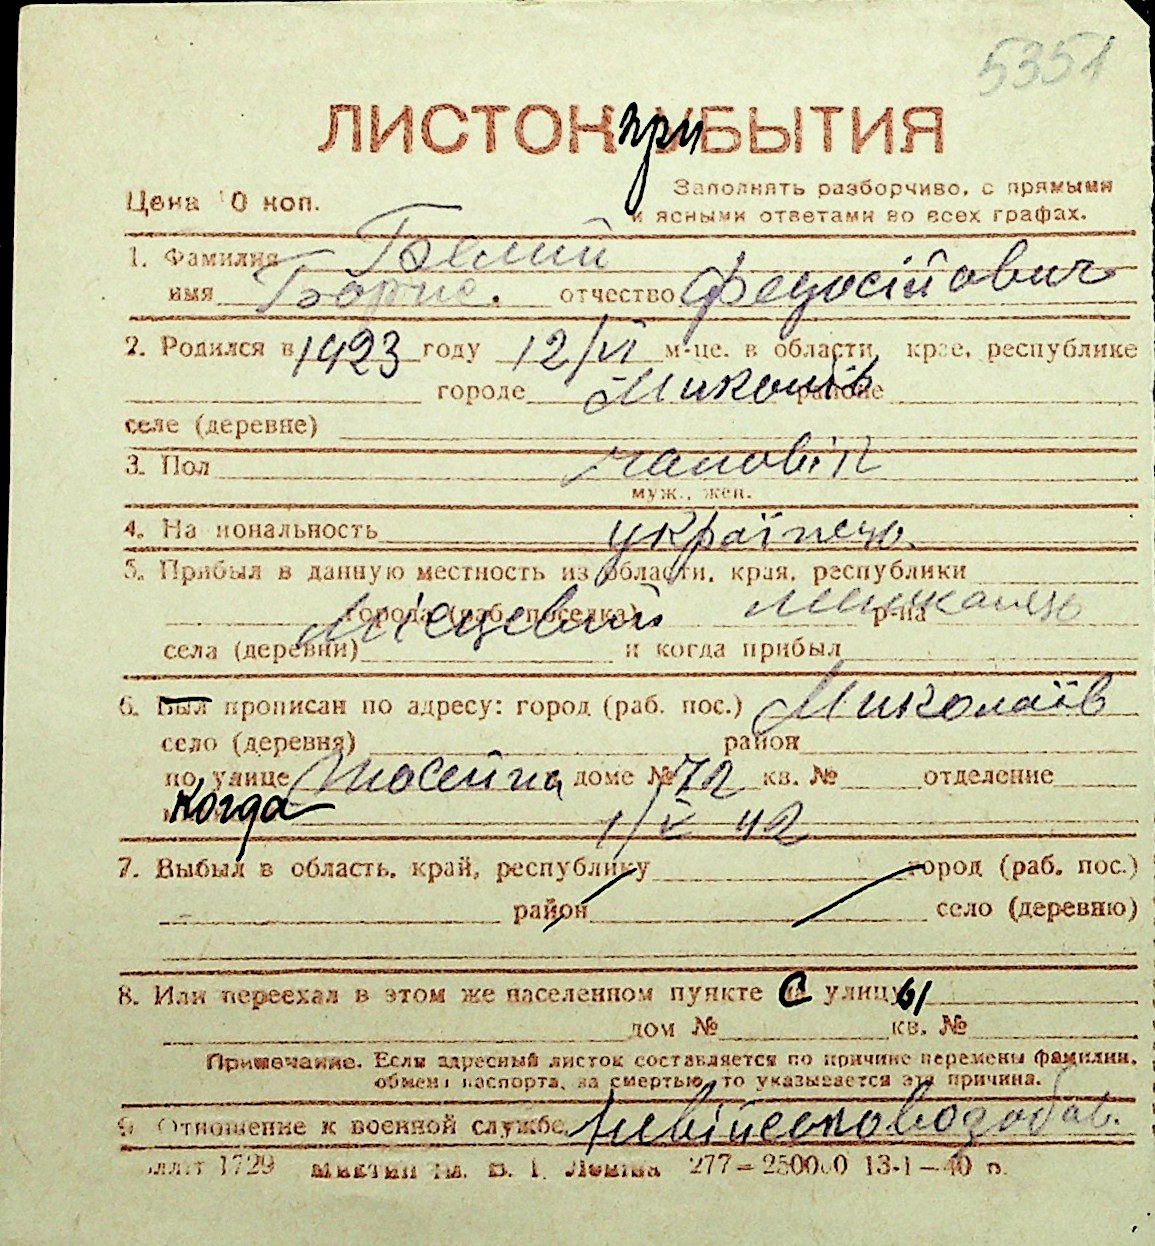 5351
ЛИСТОК при БЫТИЯ
Цена 10 коп. Заполнять разборчиво, с прямыми
и ясными ответами во всех графах.
1. Фамилия Белий
имя Борис. отчество Федосійович
2. Родился в 1923 году 12/VI м-це. в области, крае, республике
городе Миколаїв районе
селе (деревне)
3. Пол чаловік
муж., жен.
4. Национальность українець.
5. Прибыл в данную местность из области, края, республики
города (раб. поселка) Місцевий мешканець р-на
села (деревни) и когда прибыл
6. Был прописан по адресу: город (раб. пос.) Миколаїв
село (деревня) район
по улице доме № 72 кв. № отделение
когда 1/V 42
7. Выбыл в область, край, республику город (раб. пос.)
район село (деревню)
8. Или переехал в этом же населенном пункте с улицы
дом № кв. №
Примечание. Если адресный листок составляется по причине перемены фамилии,
обмена паспорта, за смертью, то указывается эта причина.
9. Отношение к военной службе
1729 им. В. І. Леніна 277—250000 13-1—40 р.